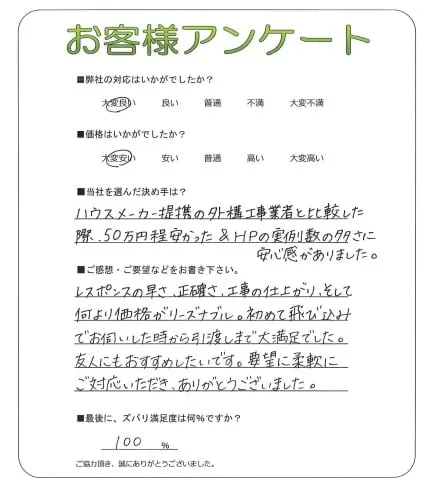 お客様アンケート
■弊社の対応はいかがでしたか？
大変良い 良い 普通 不満 大変不満
■価格はいかがでしたか？
大変安い 安い 普通 高い 大変高い
■当社を選んだ決め手は？
ハウスメーカー提携の外構工事業者と比較した
際、50万円程安かった & HPの実例数の多さに
安心感がありました。
■ご感想・ご要望などをお書き下さい。
レスポンスの早さ、正確さ、工事の仕上がり、そして
何より価格がリーズナブル。初めて飛び込み
でお伺いした時から引渡しまで大満足でした。
友人にもおすすめしたいです。要望に柔軟に
ご対応いただき、ありがとうございました。
■最後に、ズバリ満足度は何％ですか？
100 %
ご協力頂き、誠にありがとうございました。